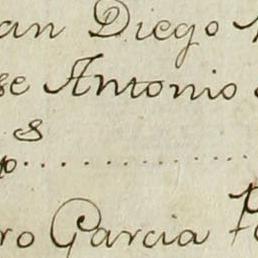 an Diego
se Antonio
s
ro Garcia